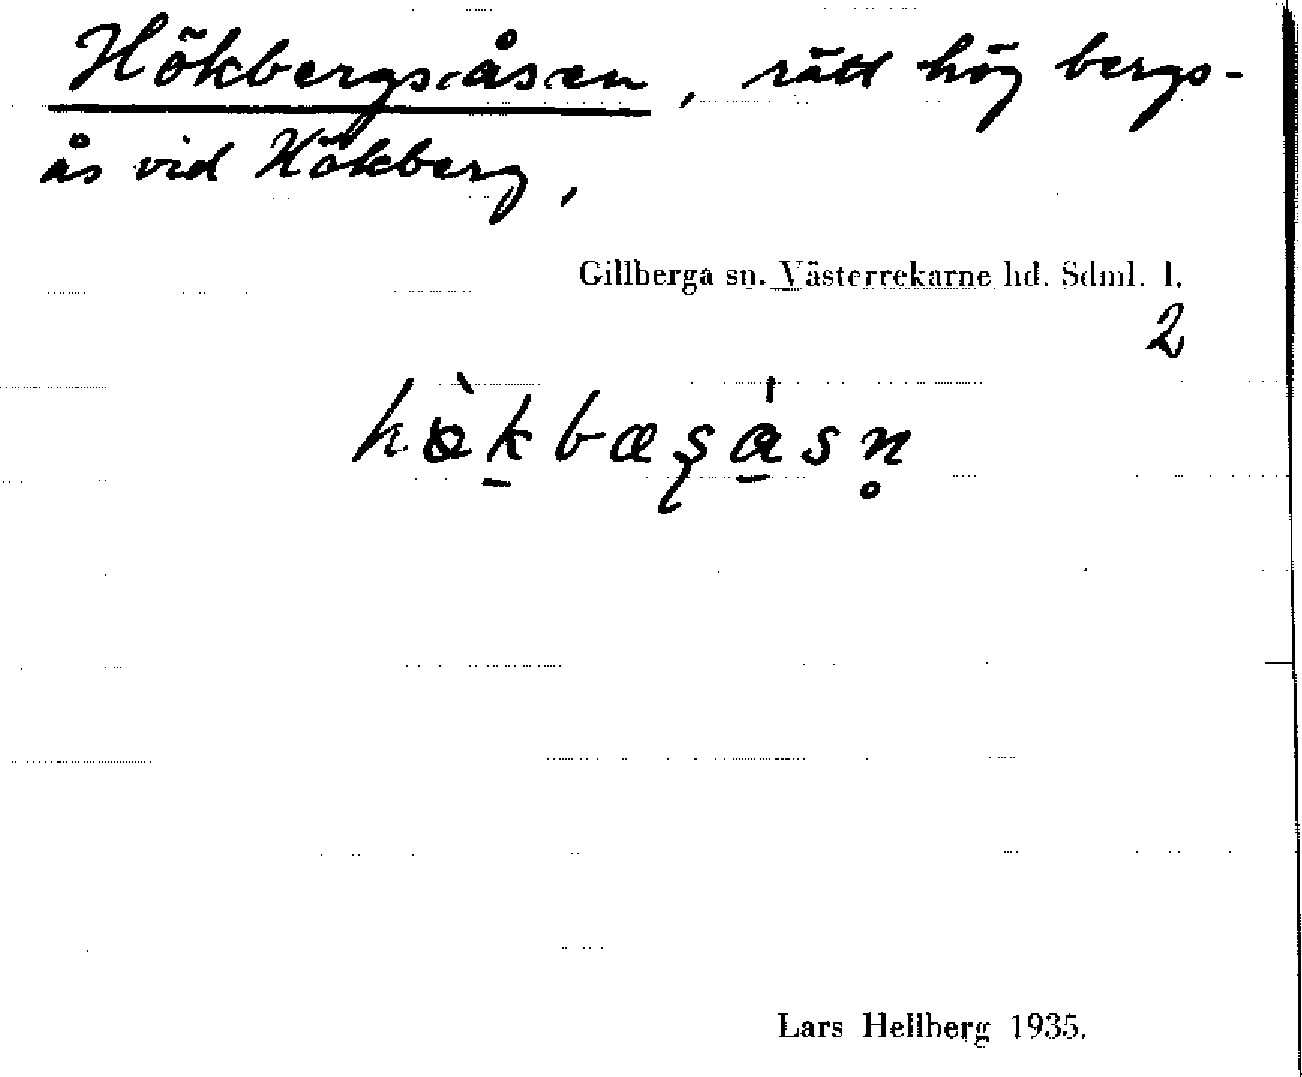 Hökbergsåsen, rätt hög bergs-
ås vid Hökberg,
Gillberga sn. Västerrekarne hd. Sdml. l.
2
Lars Hellberg 1935.